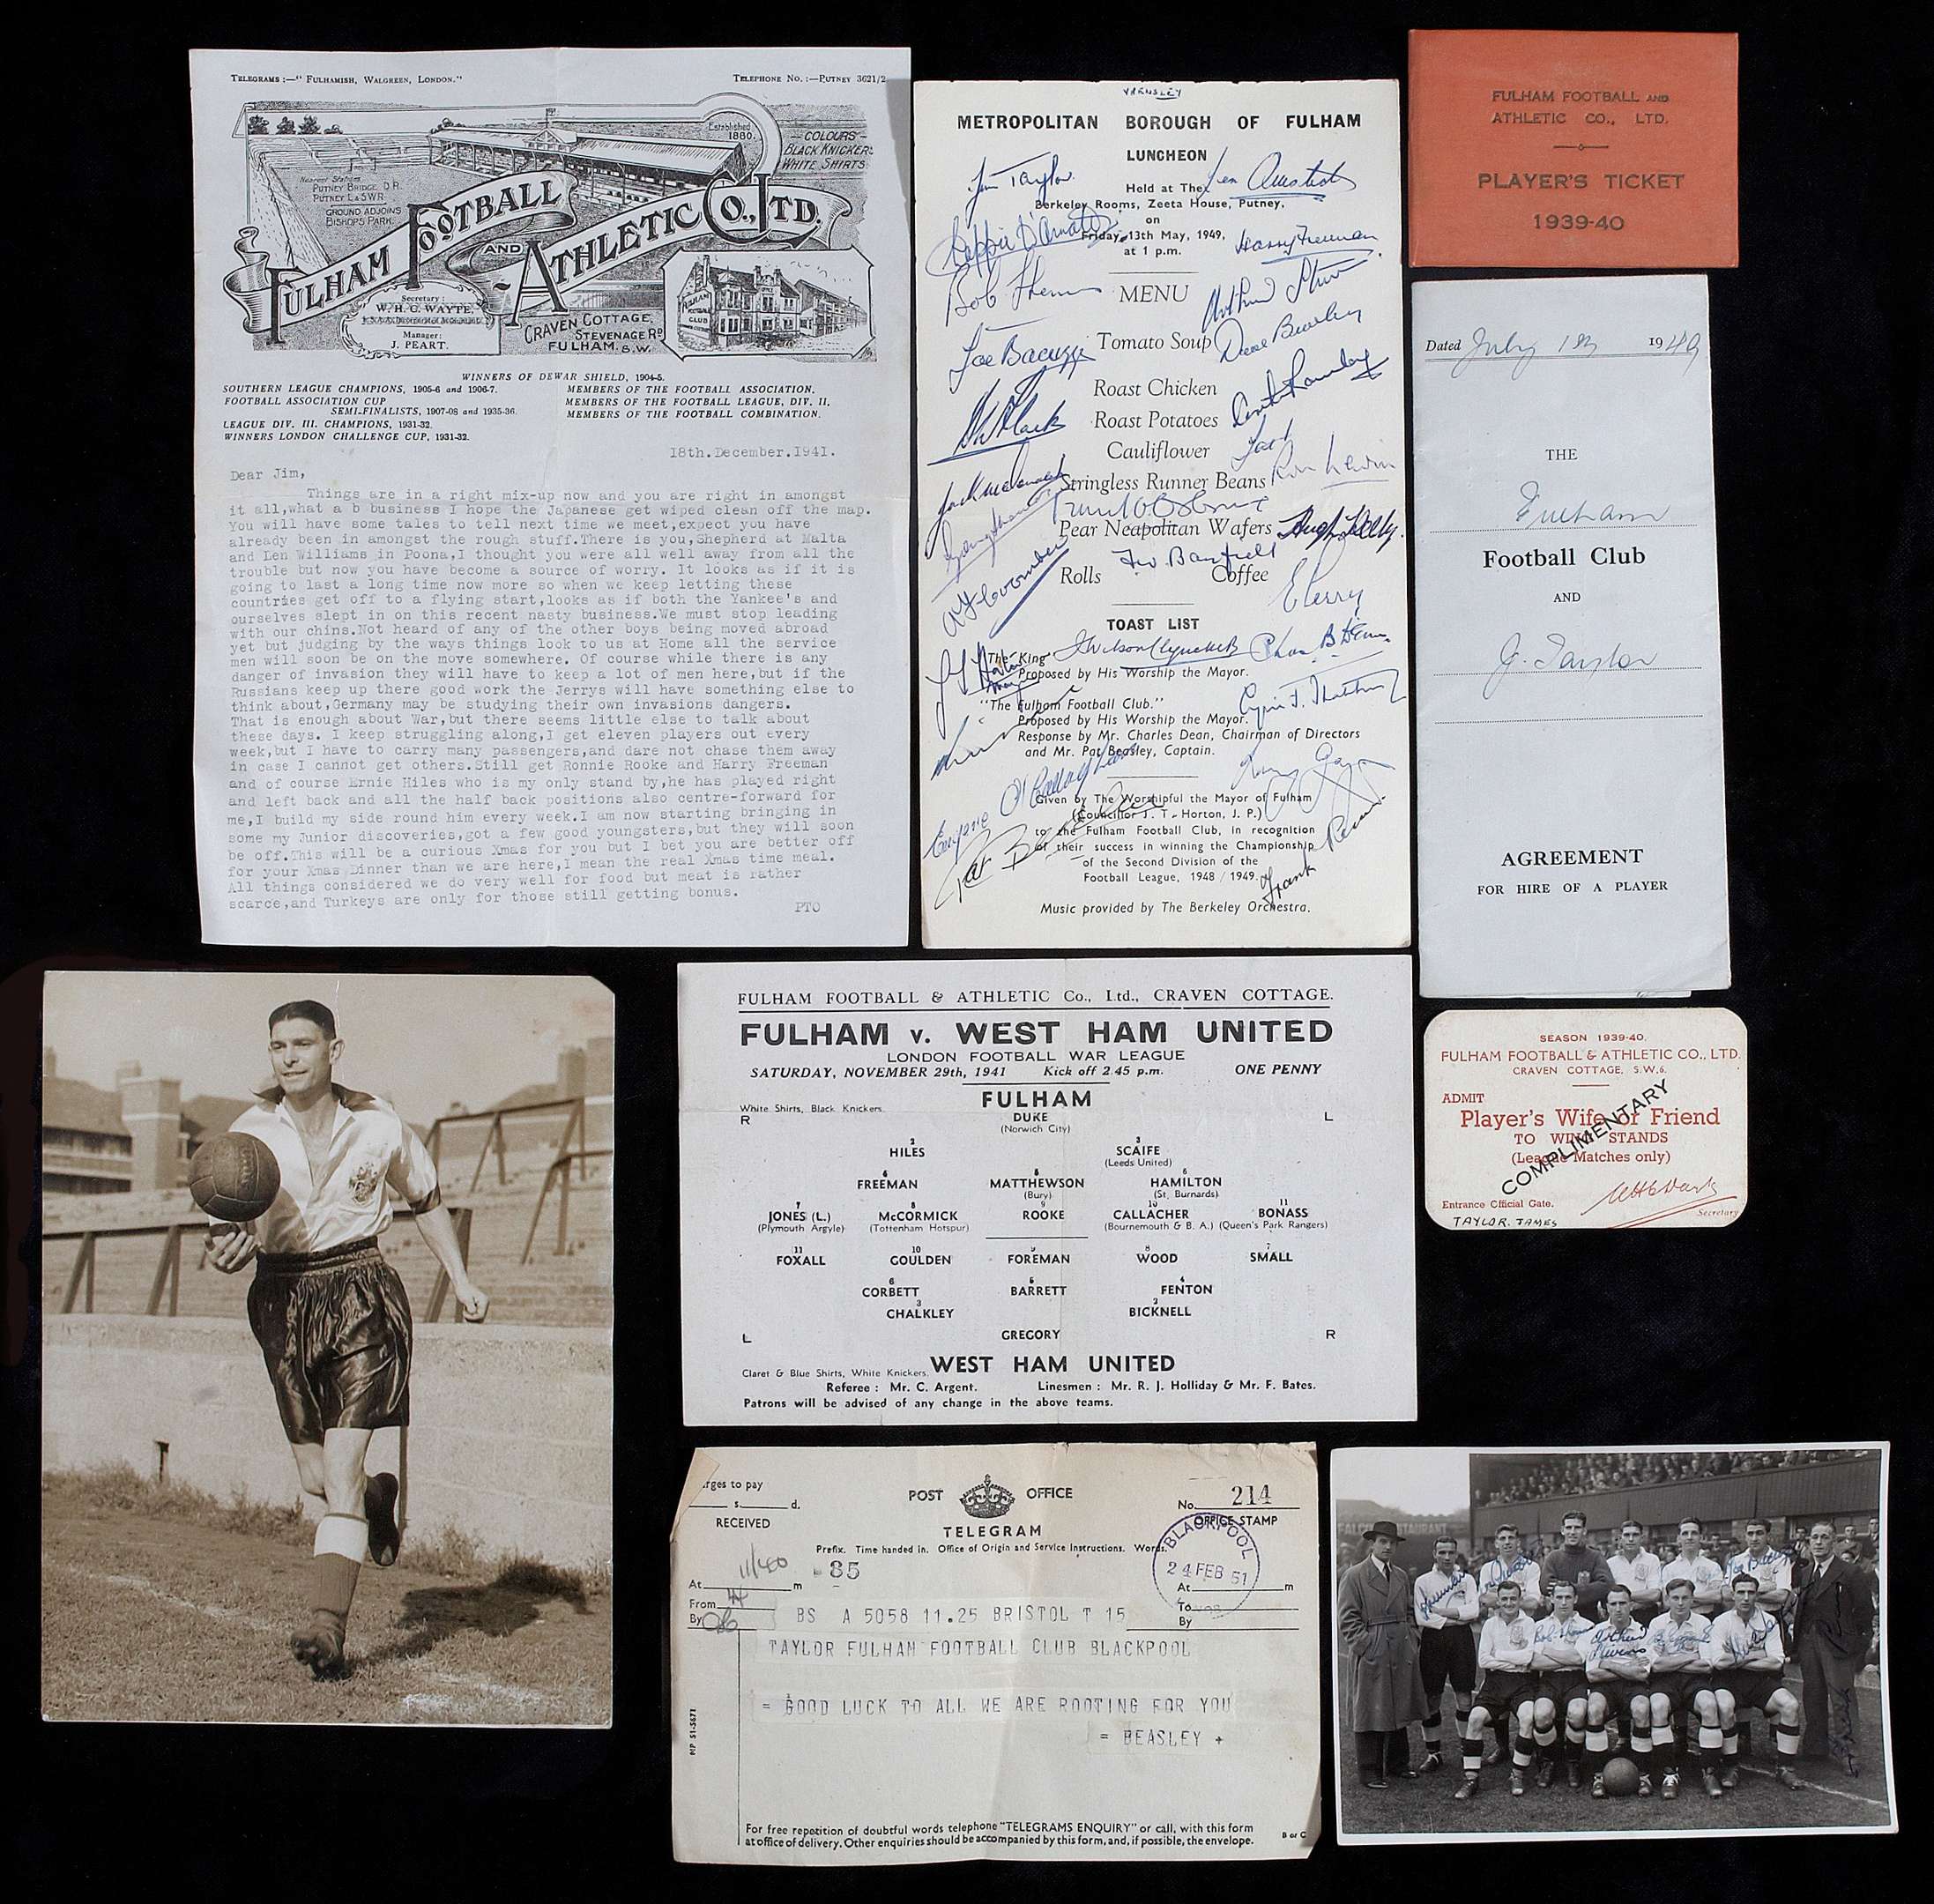 TELEGRAMS:—" FULHAMISH, WALGREEN, LONDON."
TELEPHONE NO.:—PUTNEY 3621/2
Established 1880.
—COLOURS—
BLACK KNICKERS
WHITE SHIRTS
Nearest Stations
PUTNEY BRIDGE D.R.
PUTNEY L & S.W.R.
GROUND ADJOINS
BISHOPS PARK.
FULHAM FOOTBALL
AND
ATHLETIC CO., LTD.
Secretary:
W. H. C. WAYTE,
Manager:
J. PEART.
CRAVEN COTTAGE,
STEVENAGE RD
FULHAM, S.W.
FULHAM
FOOTBALL
CLUB
WINNERS OF DEWAR SHIELD, 1904-5.
SOUTHERN LEAGUE CHAMPIONS, 1905-6 and 1906-7.
FOOTBALL ASSOCIATION CUP
SEMI-FINALISTS, 1907-08 and 1935-36.
LEAGUE DIV. III. CHAMPIONS, 1931-32.
WINNERS LONDON CHALLENGE CUP, 1931-32.
MEMBERS OF THE FOOTBALL ASSOCIATION.
MEMBERS OF THE FOOTBALL LEAGUE, DIV. II.
MEMBERS OF THE FOOTBALL COMBINATION.
18th.December.1941.
Dear Jim,
Things are in a right mix-up now and you are right in amongst
it all,what a b business I hope the Japanese get wiped clean off the map.
You will have some tales to tell next time we meet,expect you have
already been in amongst the rough stuff.There is you,Shepherd at Malta
and Len Williams in Poona,I thought you were all well away from all the
trouble but now you have become a source of worry. It looks as if it is
going to last a long time now more so when we keep letting these
countries get off to a flying start,looks as if both the Yankee's and
ourselves slept in on this recent nasty business.We must stop leading
with our chins.Not heard of any of the other boys being moved abroad
yet but judging by the ways things look to us at Home all the service
men will soon be on the move somewhere. Of course while there is any
danger of invasion they will have to keep a lot of men here,but if the
Russians keep up there good work the Jerrys will have something else to
think about,Germany may be studying their own invasions dangers.
That is enough about War,but there seems little else to talk about
these days. I keep struggling along,I get eleven players out every
week,but I have to carry many passengers,and dare not chase them away
in case I cannot get others.Still get Ronnie Rooke and Harry Freeman
and of course Ernie Hiles who is my only stand by,he has played right
and left back and all the half back positions also centre-forward for
me,I build my side round him every week.I am now starting bringing in
some my Junior discoveries,got a few good youngsters,but they will soon
be off.This will be a curious Xmas for you but I bet you are better off
for your Xmas Dinner than we are here,I mean the real Xmas time meal.
All things considered we do very well for food but meat is rather
scarce,and Turkeys are only for those still getting bonus.
PTO
METROPOLITAN BOROUGH OF FULHAM
LUNCHEON
Held at The
Berkeley Rooms, Zeeta House, Putney,
on
Friday, 13th May, 1949,
at 1 p.m.
MENU
Tomato Soup
Roast Chicken
Roast Potatoes
Cauliflower
Stringless Runner Beans
Pear Neapolitan Wafers
Rolls Coffee
TOAST LIST
"The King"
Proposed by His Worship the Mayor.
"The Fulham Football Club."
Proposed by His Worship the Mayor.
Response by Mr. Charles Dean, Chairman of Directors
and Mr. Pat Beasley, Captain.
Given by The Worshipful the Mayor of Fulham
(Councillor J. T. Horton, J. P.)
to the Fulham Football Club, in recognition
of their success in winning the Championship
of the Second Division of the
Football League, 1948 / 1949.
Music provided by The Berkeley Orchestra.
Jim Taylor
Harry Freeman
Beppie D'Arnatt
Bob Thomas
Joe Bacuzzi
Ron Lewin
Hugh Kelly.
Eugene O'Callaghan
Frank Penn
FULHAM FOOTBALL AND
ATHLETIC CO., LTD.
PLAYER'S TICKET
1939-40
Dated July 1st 1949
THE
Fulham
Football Club
AND
J. Taylor
AGREEMENT
FOR HIRE OF A PLAYER
FULHAM FOOTBALL & ATHLETIC Co., Ltd., CRAVEN COTTAGE.
FULHAM v. WEST HAM UNITED
LONDON FOOTBALL WAR LEAGUE
SATURDAY, NOVEMBER 29th, 1941 Kick off 2.45 p.m. ONE PENNY
FULHAM
White Shirts, Black Knickers.
R DUKE L
(Norwich City)
2 3
HILES SCAIFE
(Leeds United)
FREEMAN MATTHEWSON HAMILTON
(Bury) (St. Burnards)
JONES (L.) McCORMICK ROOKE CALLACHER BONASS
(Plymouth Argyle) (Tottenham Hotspur) (Bournemouth & B. A.) (Queen's Park Rangers)
11 10 9 8 7
FOXALL GOULDEN FOREMAN WOOD SMALL
6 5 4
CORBETT BARRETT FENTON
3 2
CHALKLEY BICKNELL
L GREGORY R
Claret & Blue Shirts, White Knickers. WEST HAM UNITED
Referee : Mr. C. Argent. Linesmen : Mr. R. J. Holliday & Mr. F. Bates.
Patrons will be advised of any change in the above teams.
SEASON 1939-40.
FULHAM FOOTBALL & ATHLETIC CO., LTD.
CRAVEN COTTAGE, S.W.6.
ADMIT
Player's Wife or Friend
TO WING STANDS
(League Matches only)
COMPLIMENTARY
Entrance Official Gate.
Secretary
TAYLOR. JAMES
rges to pay
s. d.
RECEIVED
POST OFFICE
TELEGRAM
No. 214
OFFICE STAMP
Prefix. Time handed in. Office of Origin and Service Instructions. Words.
BLACKPOOL
24 FEB 51
85
At m
From
By
At m
To
By
BS A 5058 11.25 BRISTOL T 15
TAYLOR FULHAM FOOTBALL CLUB BLACKPOOL
= GOOD LUCK TO ALL WE ARE ROOTING FOR YOU
= BEASLEY +
MP 51-5671
For free repetition of doubtful words telephone "TELEGRAMS ENQUIRY" or call, with this form
at office of delivery. Other enquiries should be accompanied by this form, and, if possible, the envelope.
B or C
Joe Bacuzzi
Bob Thomas
Arthur
Stevens